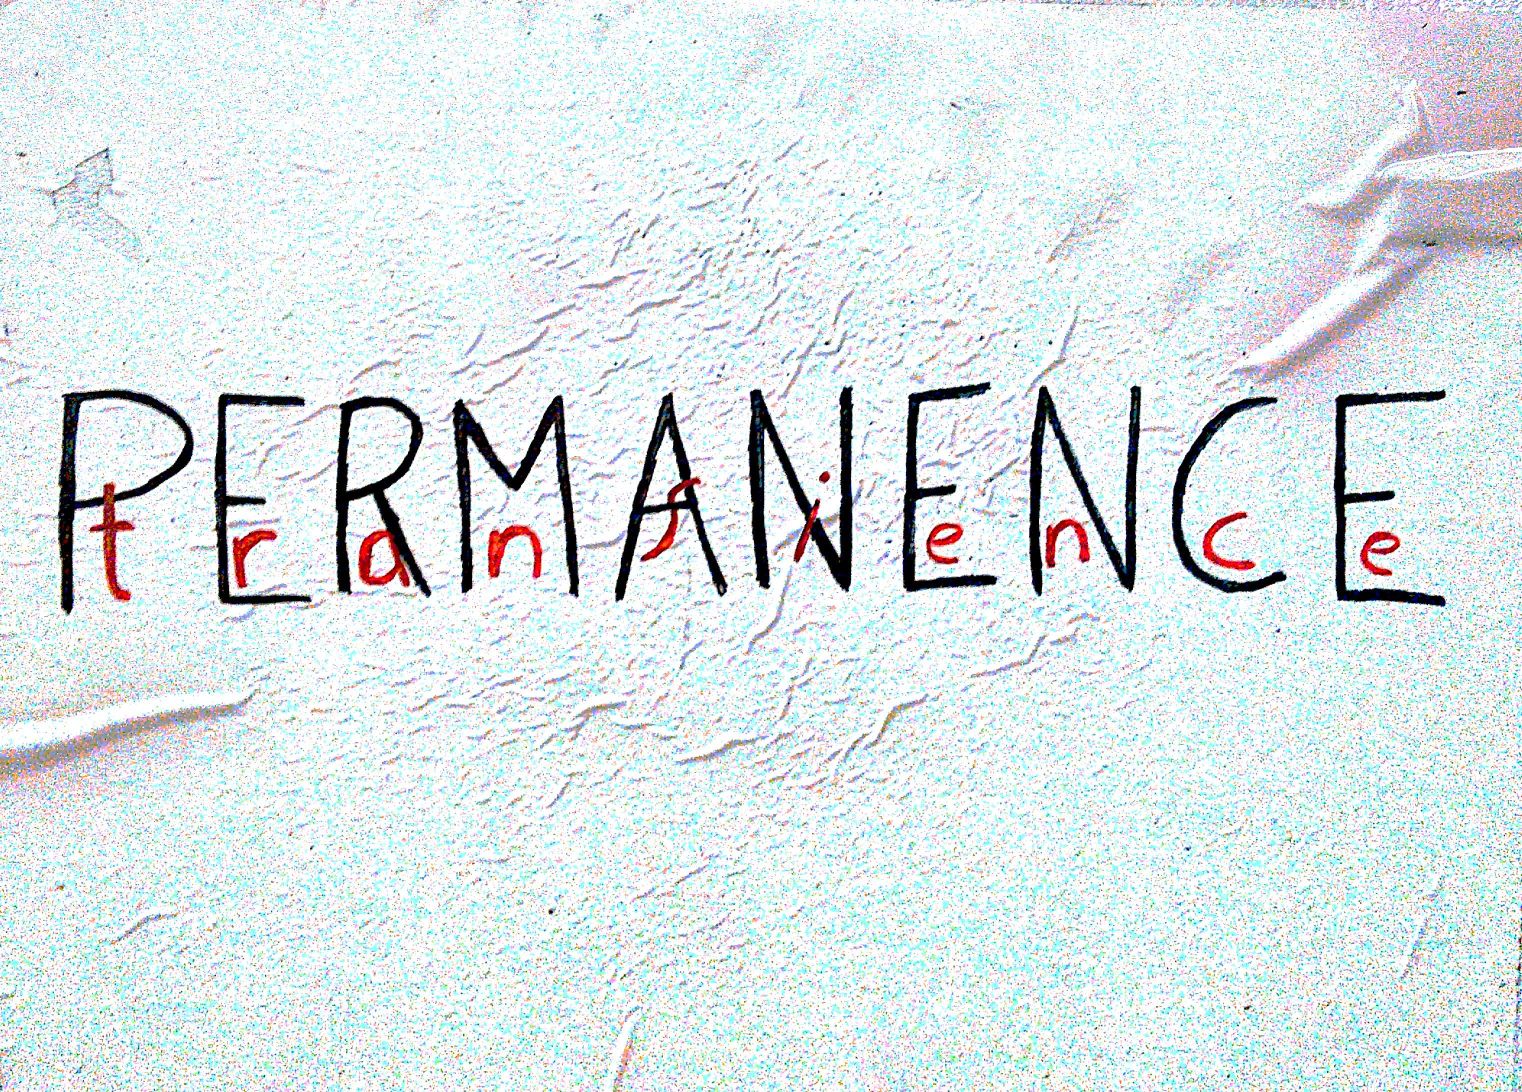 PERMANENCE
transience